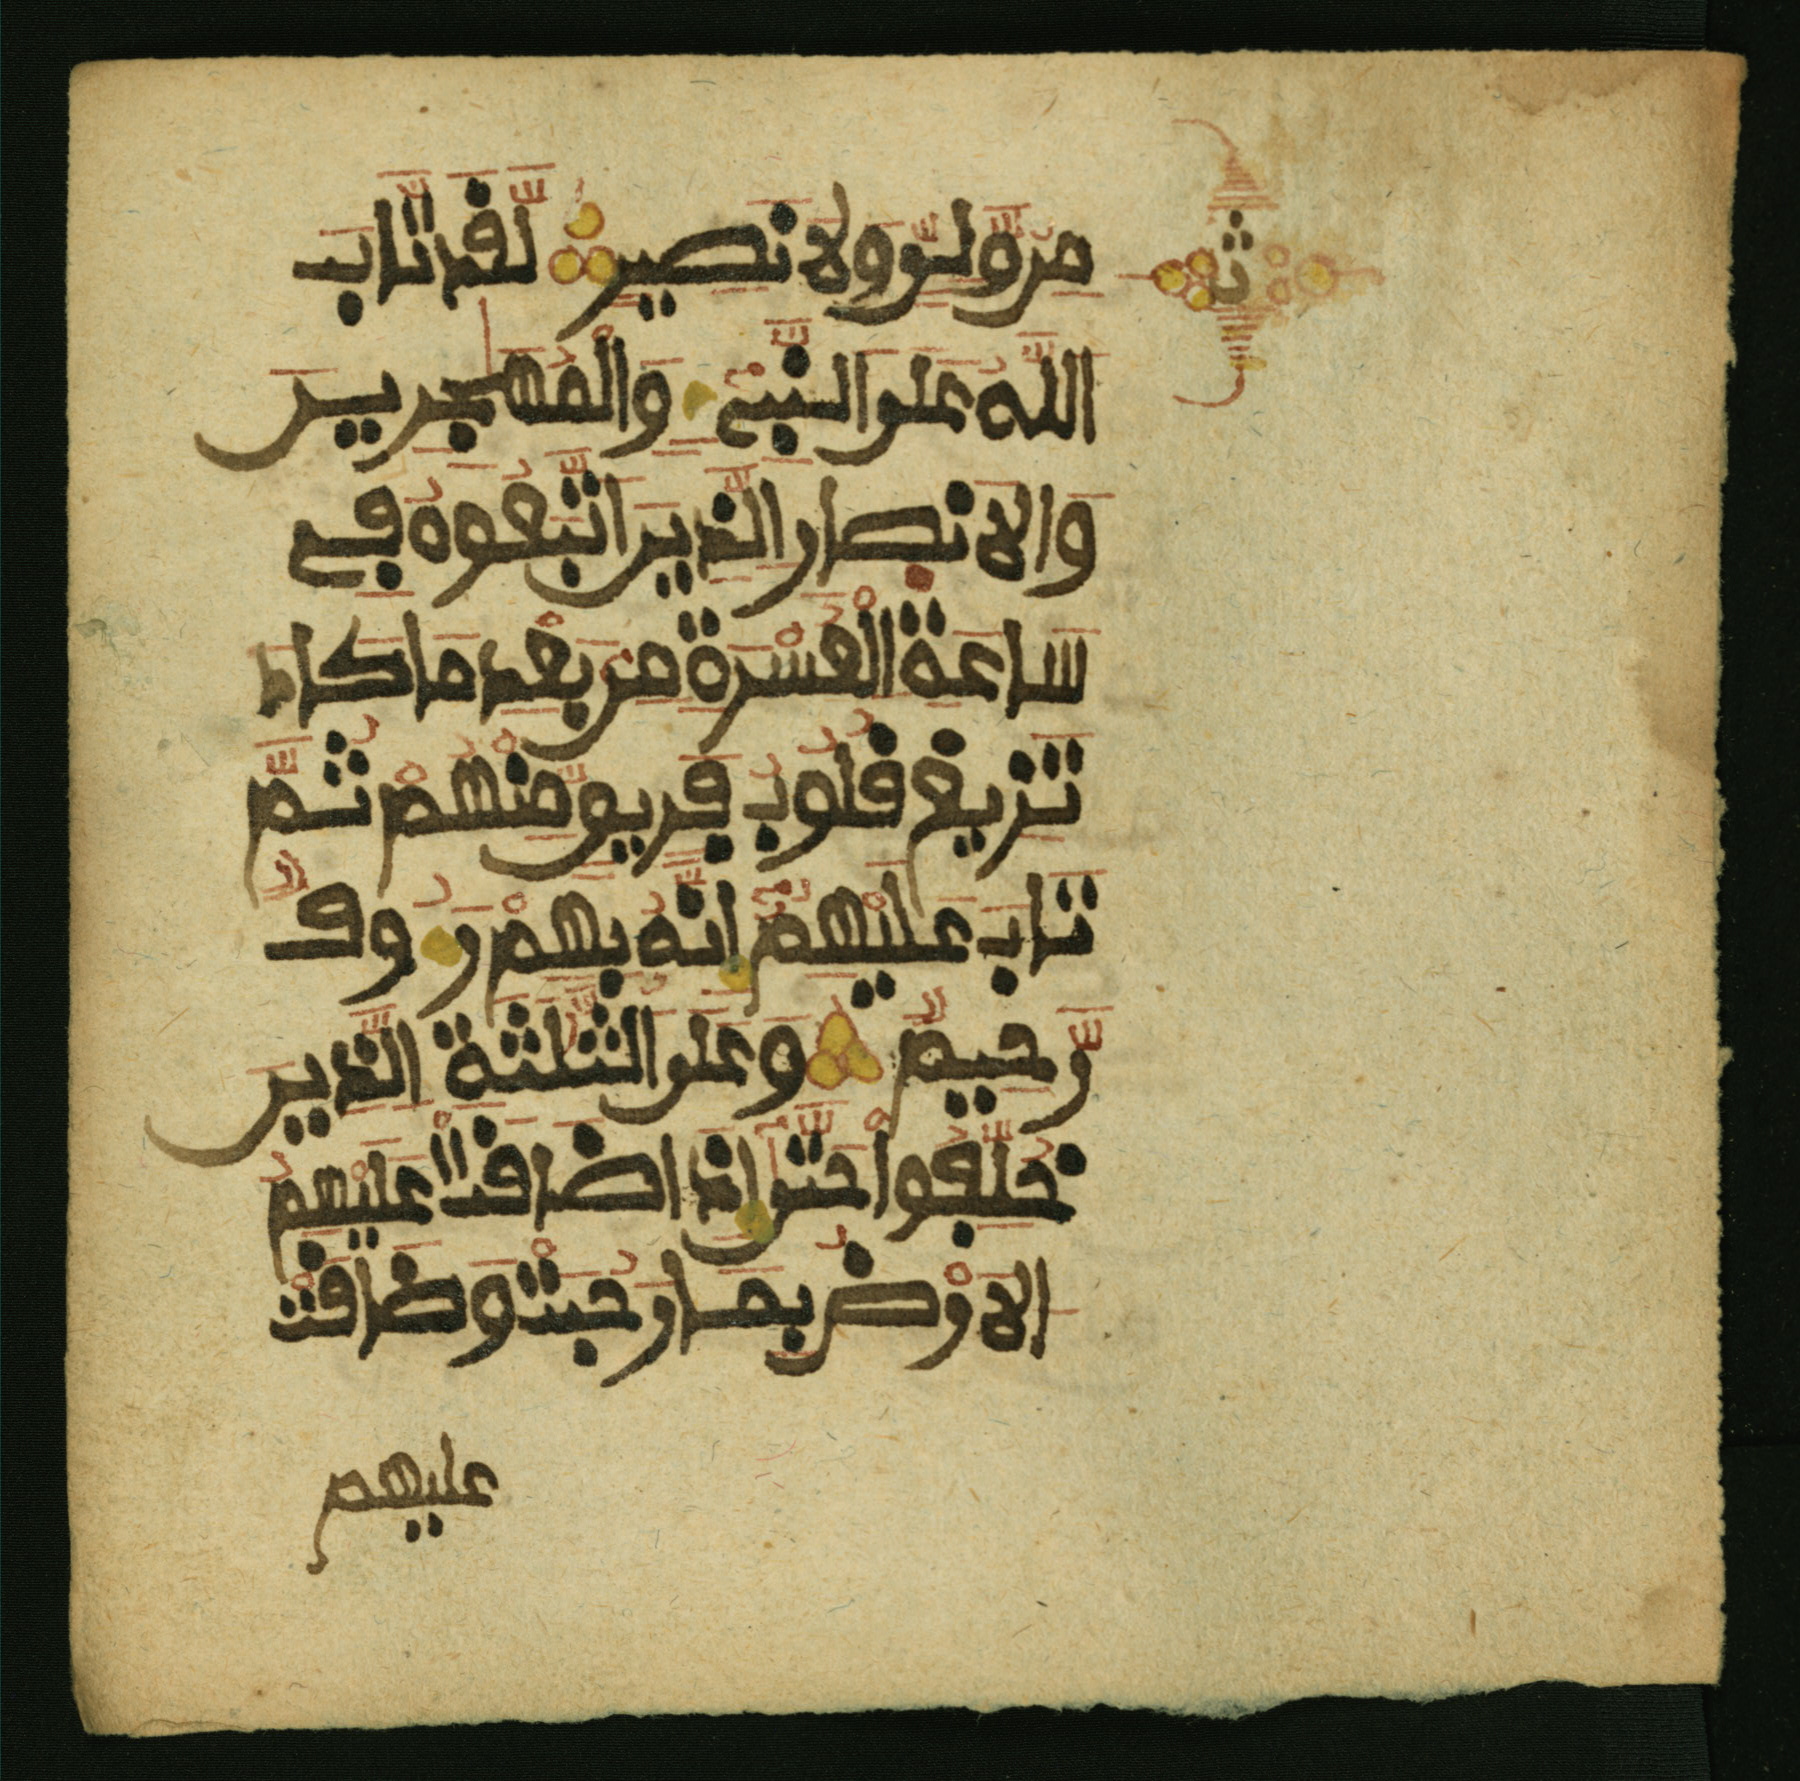 مِن وَّلِيٍّ وَلَا نَصِيرٍ لَّقَد تَّابَ
اللَّهُ عَلَى النَّبِيِّ وَالْمُهَٰجِرِينَ
وَالَانصَارِ الَّذِينَ اتَّبَعُوهُ فِي
سَاعَةِ الْعُسْرَةِ مِن بَعْدِ مَا كَادَ
تَزِيغُ قُلُوبُ فَرِيقٍ مِّنْهُمْ ثُمَّ
تَابَ عَلَيْهِمُ إِنَّهُ بِهِمْ رَءُوفٌ
رَّحِيمٌ وَعَلَى الثَّلَٰثَةِ الَّذِينَ
خُلِّفُواْ حَتَّىٰ إِذَا ضَاقَتْ عَلَيْهِمُ
الَارْضُ بِمَا رَحُبَتْ وَضَاقَتْ
عليهم
ث